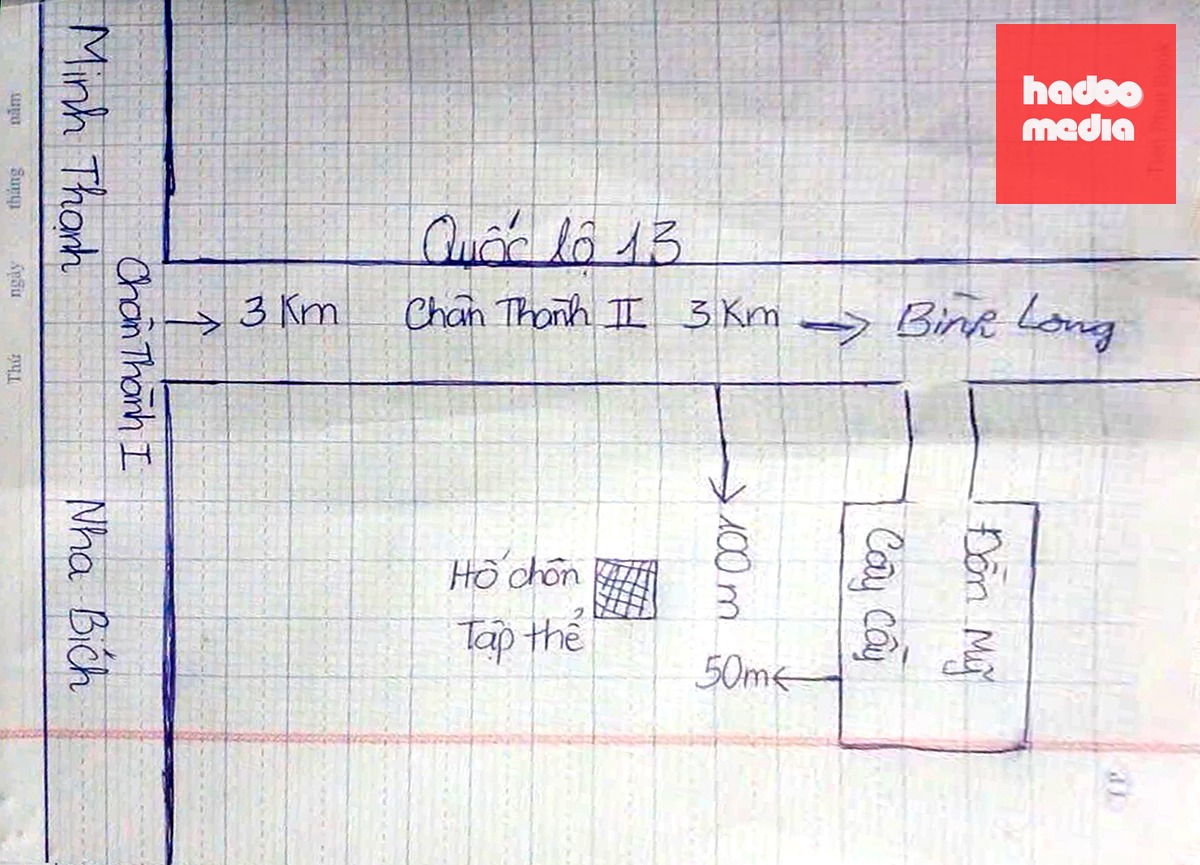 hadoo
media
Thứ ngày tháng năm
Minh Thạnh
Chân Thành I
Nha Bích
Quốc lộ 13
→ 3 Km Chân Thành II 3 Km → Bình Long
100 m
Hố chôn
Tập thể
50m ←
Đồn Mỹ
Cây Cầy